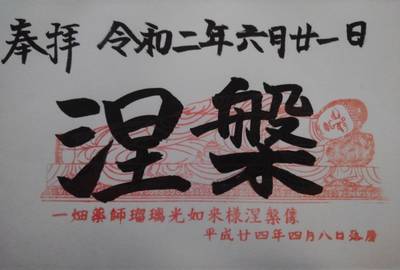 奉拝 令和二年六月廿一日
涅槃
一畑薬師瑠璃光如来様涅槃像
平成廿四年四月八日落慶